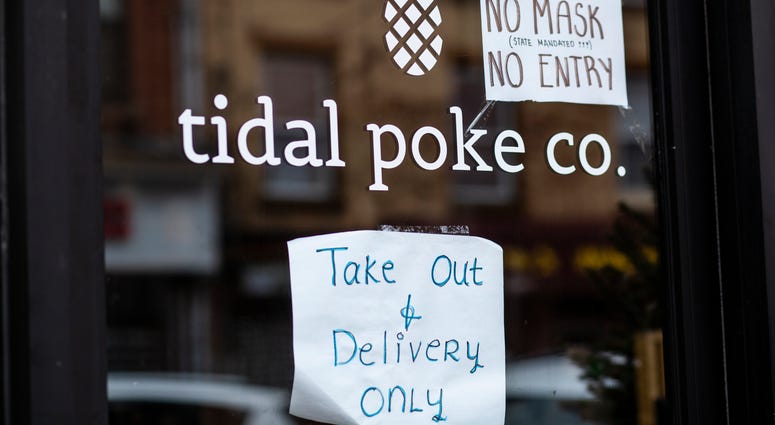 NO MASK
(STATE MANDATED !!!)
NO ENTRY
tidal poke co.
Take Out
&
Delivery
ONLY